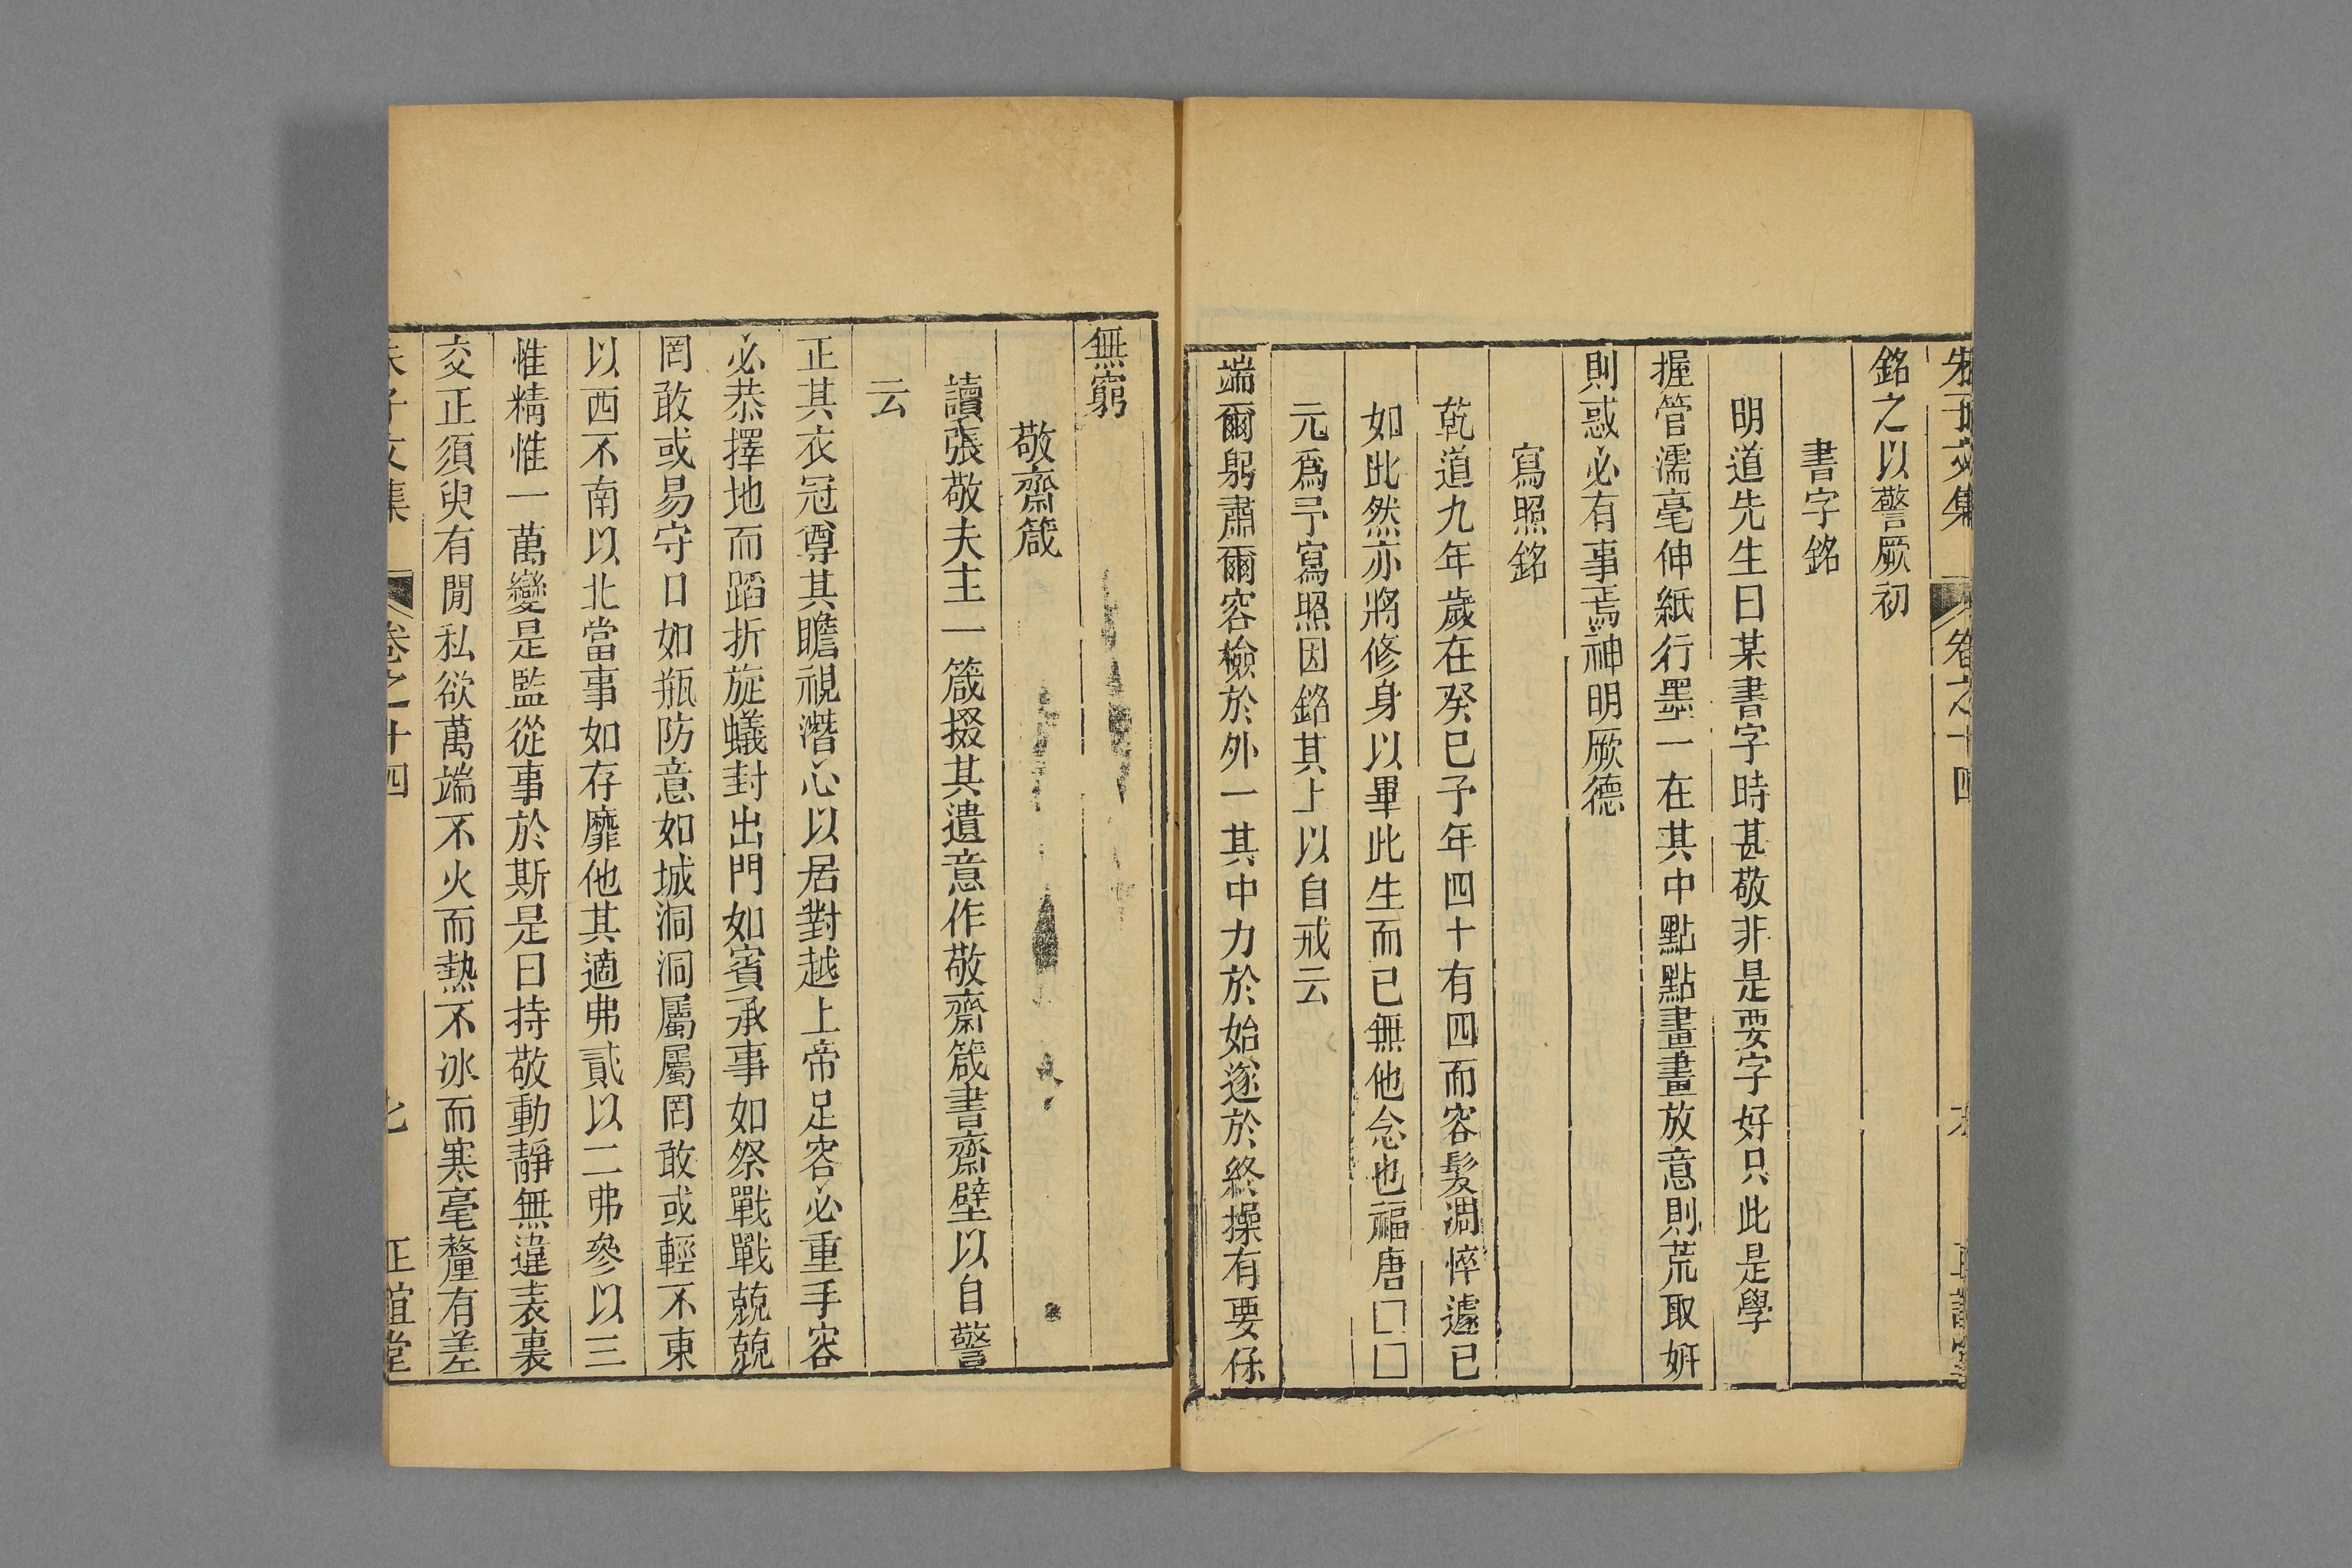 朱子文集 卷之十四 六
銘之以警厥初
書字銘
明道先生曰某書字時甚敬非是要字好只此是學
握管濡毫伸紙行墨一在其中點點畫畫放意則荒取妍
則惑必有事焉神明厥德
寫照銘
乾道九年歲在癸巳予年四十有四而容髮凋悴遽已
如此然亦將修身以畢此生而已無他念也福唐□□
元爲予寫照因銘其上以自戒云
端爾躬肅爾容檢於外一其中力於始遂於終操有要保
無窮
敬齋箴
讀張敬夫主一箴掇其遺意作敬齋箴書齋壁以自警
云
正其衣冠尊其瞻視潛心以居對越上帝足容必重手容
必恭擇地而蹈折旋蟻封出門如賓承事如祭戰戰兢兢
罔敢或易守口如瓶防意如城洞洞屬屬罔敢或輕不東
以西不南以北當事如存靡他其適弗貳以二弗參以三
惟精惟一萬變是監從事於斯是曰持敬動靜無違表裏
交正須臾有閒私欲萬端不火而熱不冰而寒毫釐有差
朱子文集 卷之十四 七 正誼堂